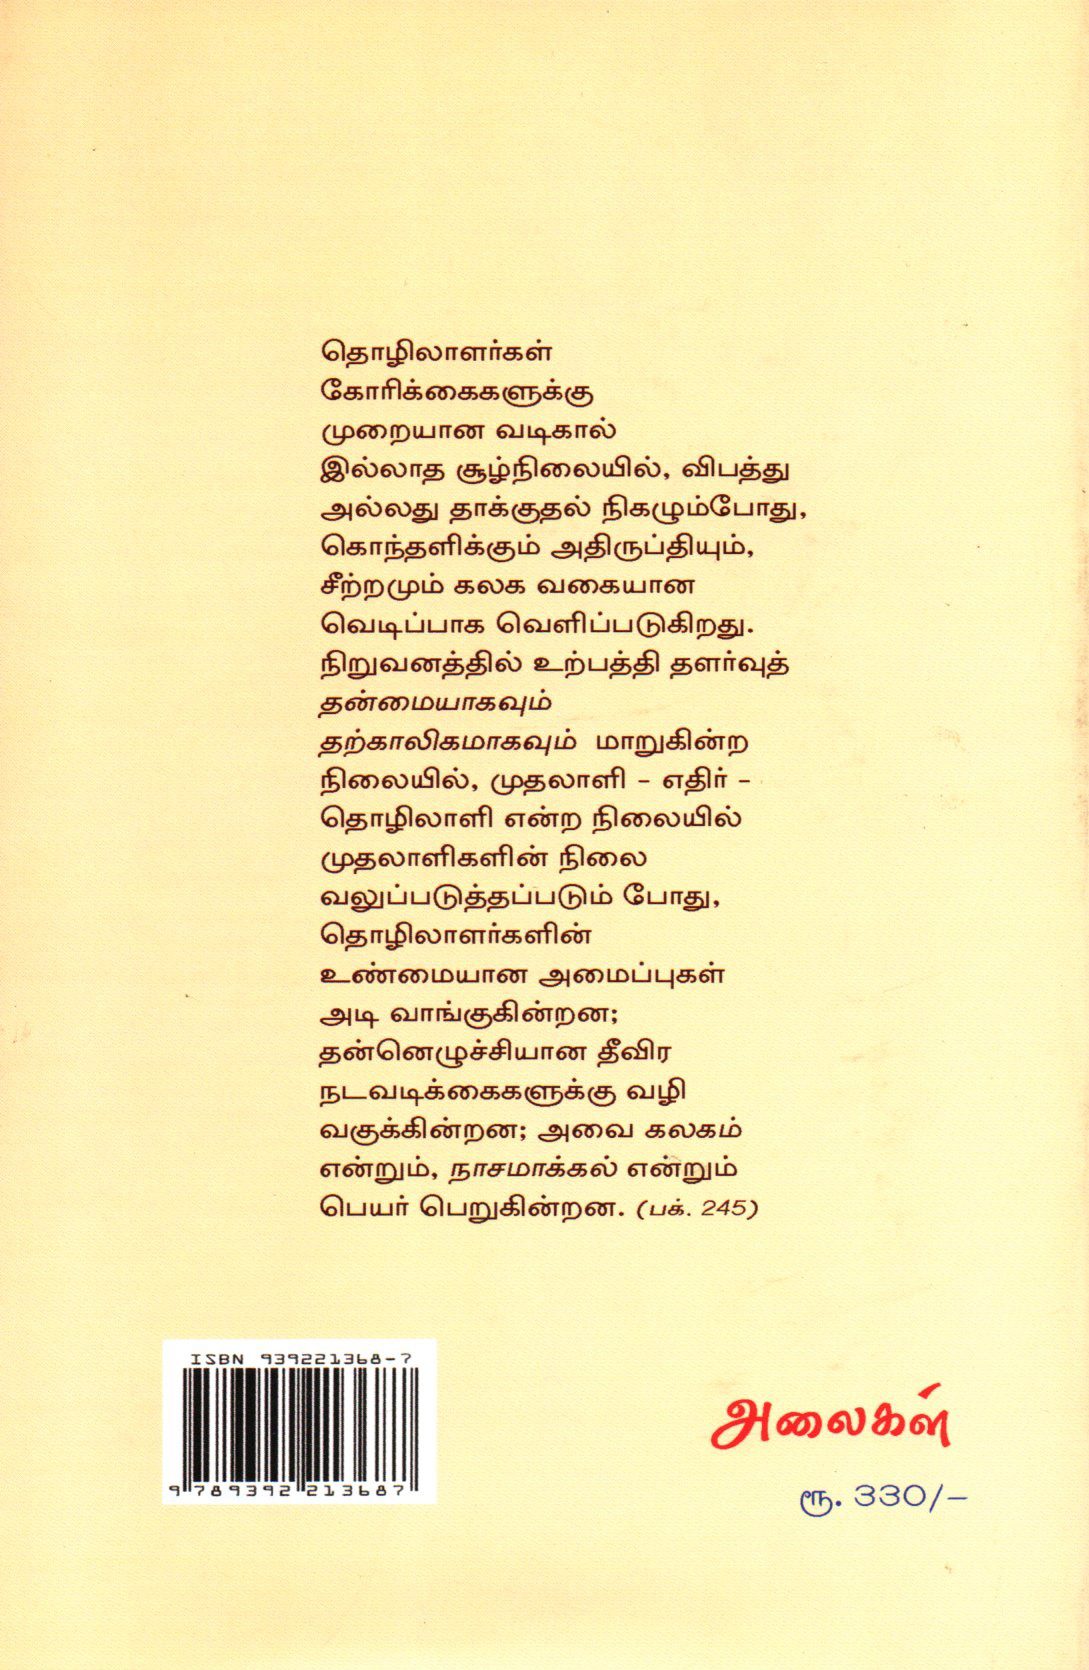 தொழிலாளர்கள்
கோரிக்கைகளுக்கு
முறையான வடிகால்
இல்லாத சூழ்நிலையில், விபத்து
அல்லது தாக்குதல் நிகழும்போது,
கொந்தளிக்கும் அதிருப்தியும்,
சீற்றமும் கலக வகையான
வெடிப்பாக வெளிப்படுகிறது.
நிறுவனத்தில் உற்பத்தி தளர்வுத்
தன்மையாகவும்
தற்காலிகமாகவும் மாறுகின்ற
நிலையில், முதலாளி – எதிர் –
தொழிலாளி என்ற நிலையில்
முதலாளிகளின் நிலை
வலுப்படுத்தப்படும் போது,
தொழிலாளர்களின்
உண்மையான அமைப்புகள்
அடி வாங்குகின்றன;
தன்னெழுச்சியான தீவிர
நடவடிக்கைகளுக்கு வழி
வகுக்கின்றன; அவை கலகம்
என்றும், நாசமாக்கல் என்றும்
பெயர் பெறுகின்றன. (பக். 245)
ISBN 939221368-7
9 789392 213687
அலைகள்
ரூ. 330/–